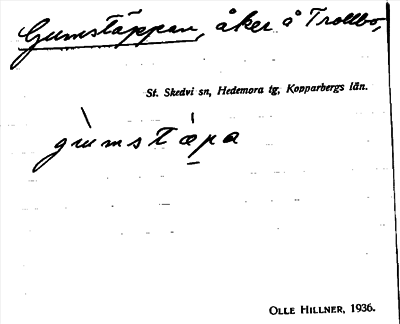 Gumstäppan, åker å Trollbo,
St. Skedvi sn, Hedemora tg, Kopparbergs län.
gu̇mstæpa
OLLE HILLNER, 1936.